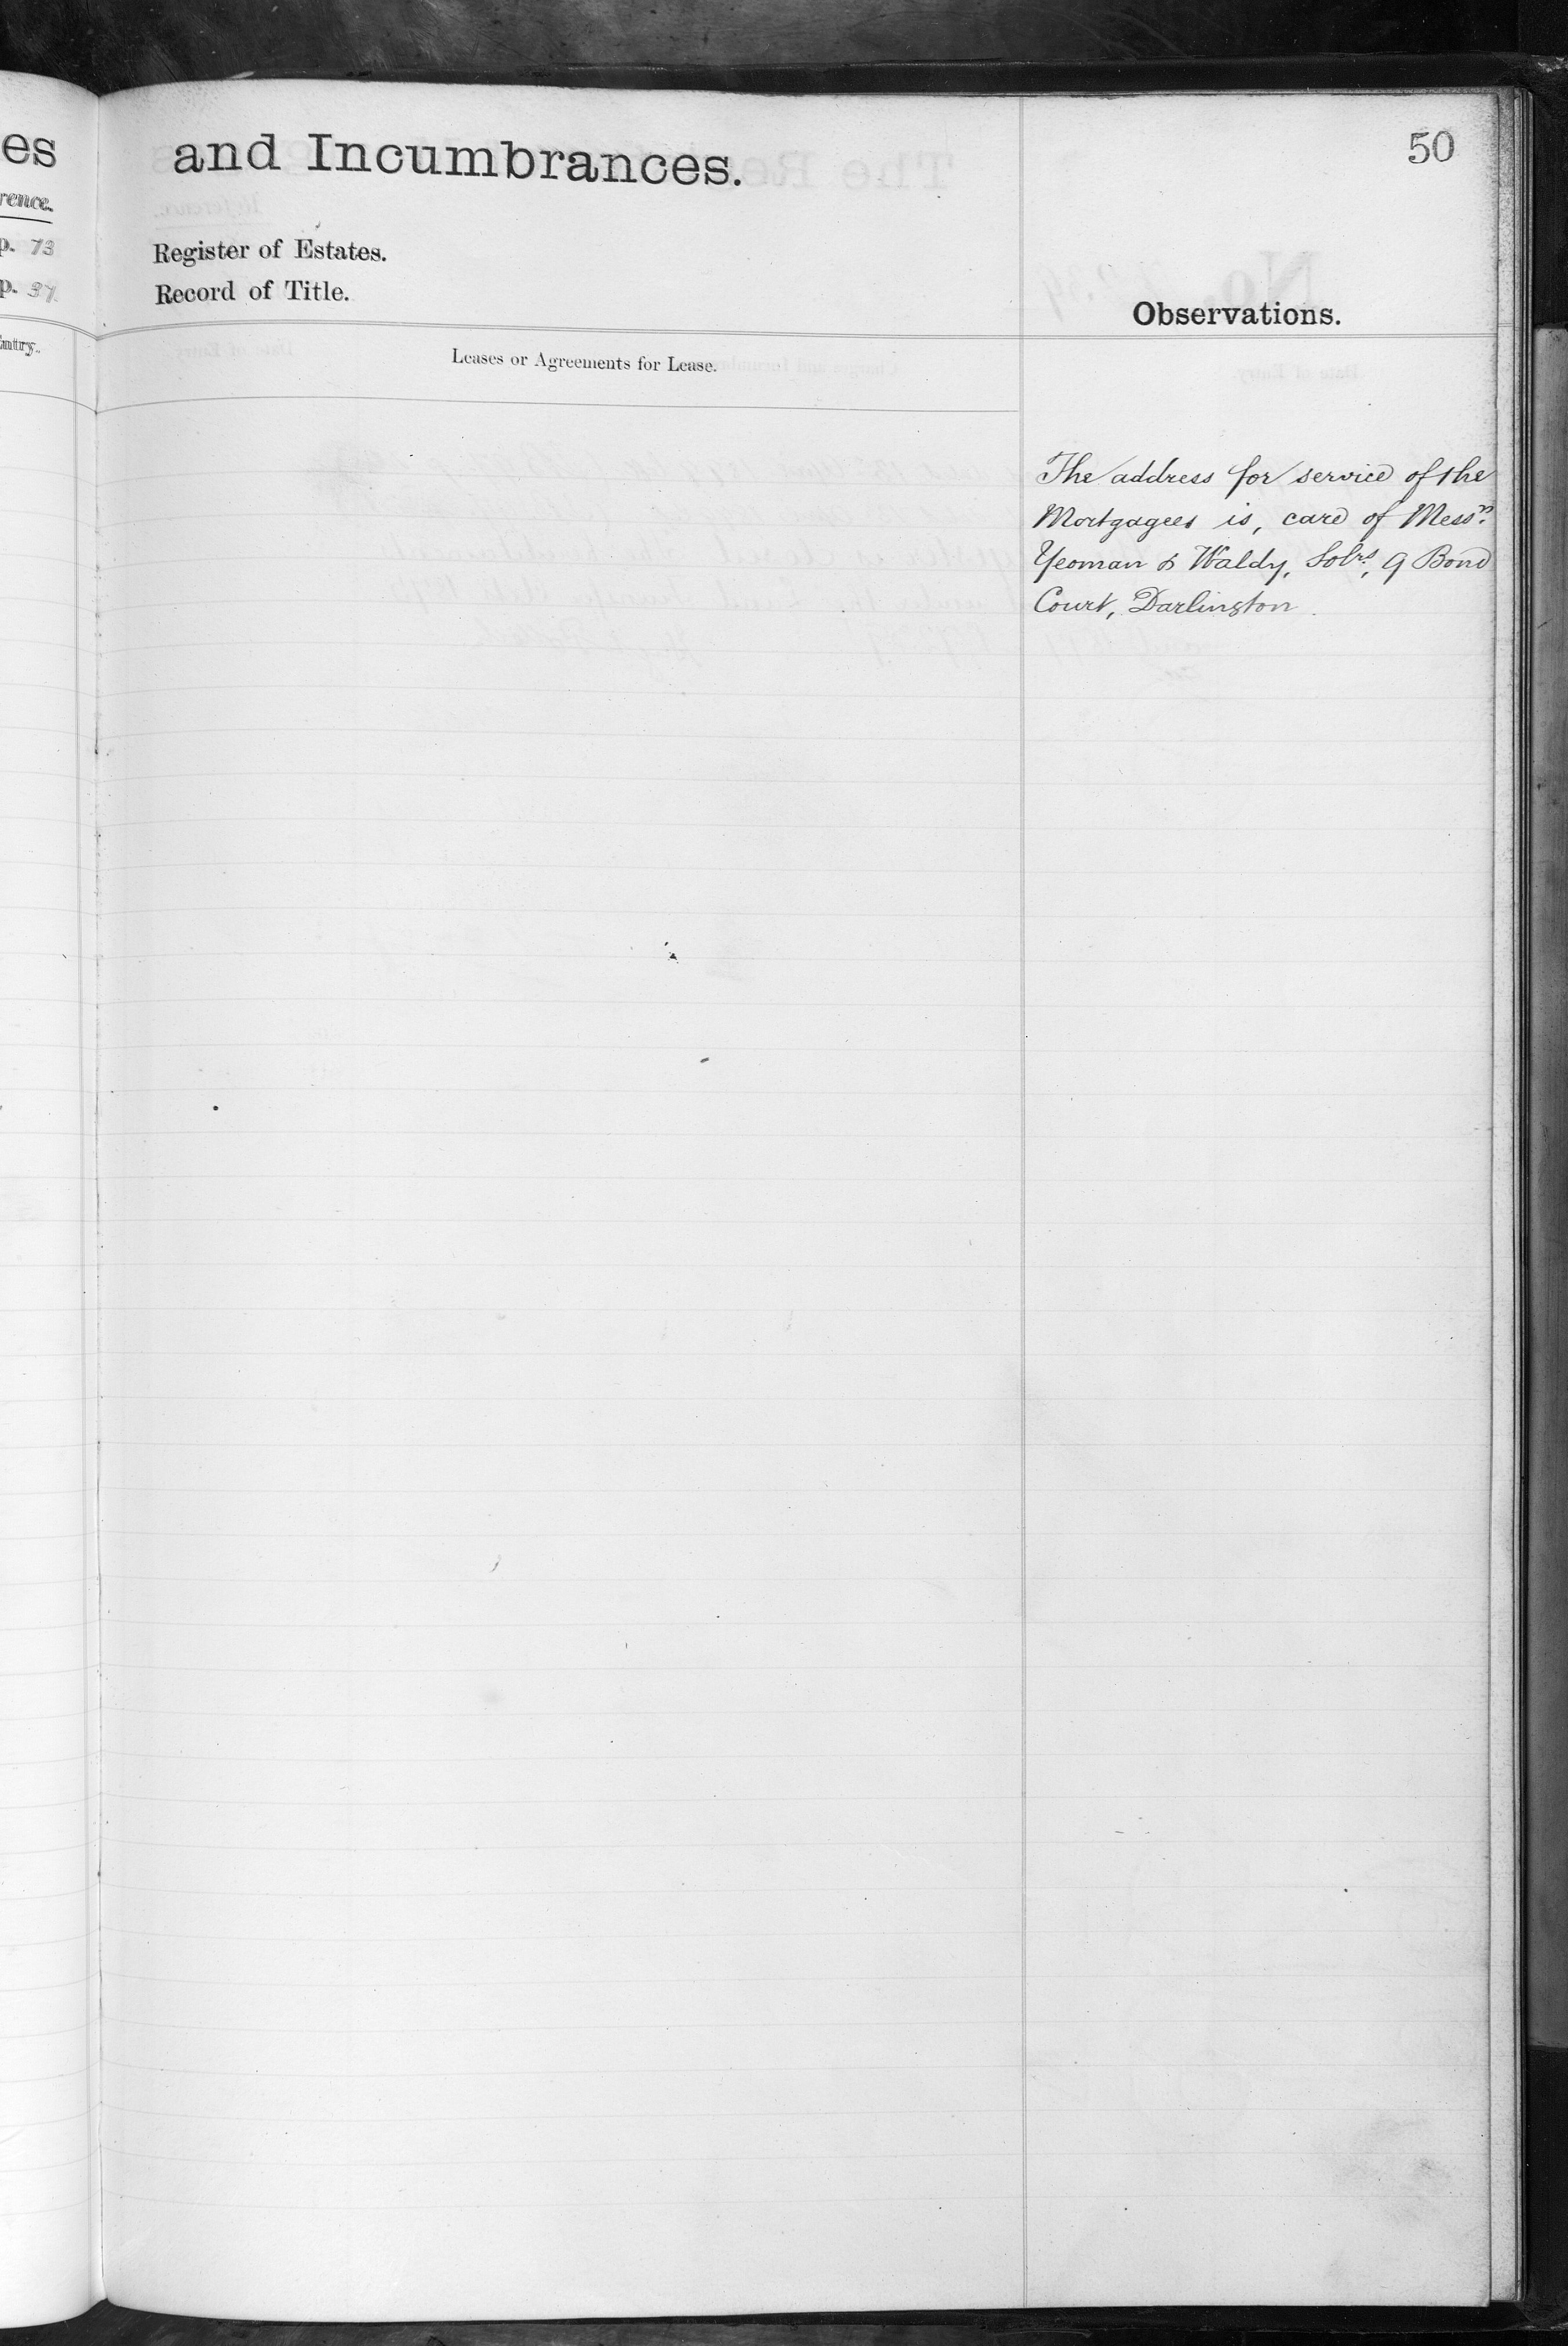 es
rence.
p. 73
p. 37
Entry.
and Incumbrances.
50
Register of Estates.
Record of Title.
Observations.
Leases or Agreements for Lease.
The address for service of the
Mortgagees is, care of Messrs.
Yeoman & Waldy, Solrs, 9 Bond
Court, Darlington.